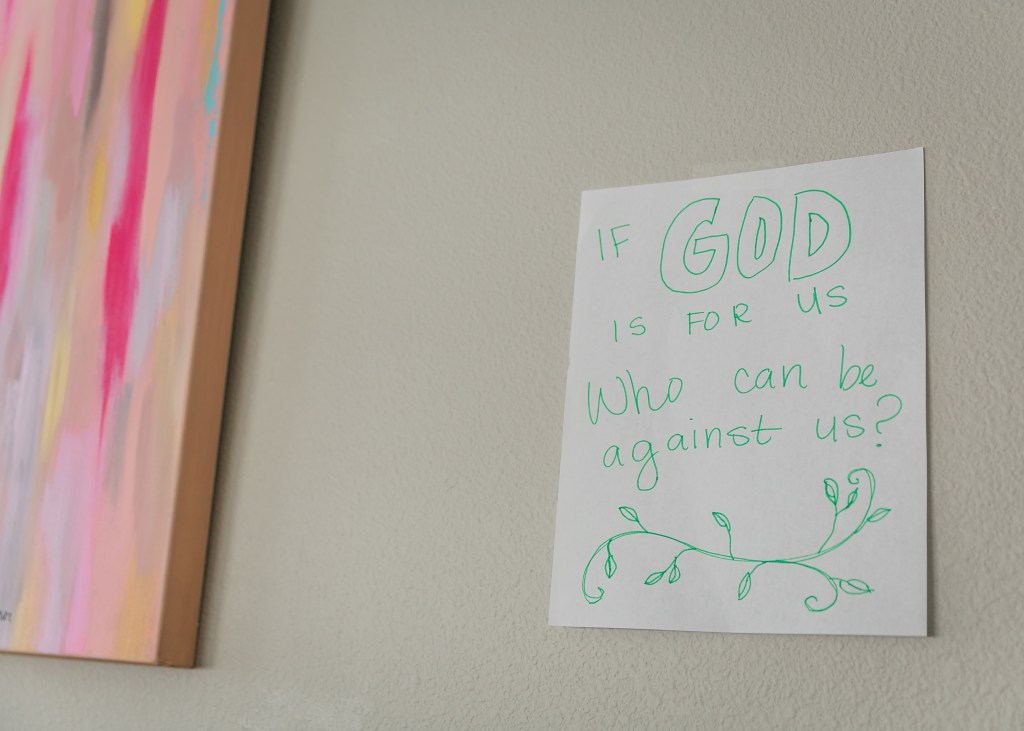 IF GOD
IS FOR US
Who can be
against us?